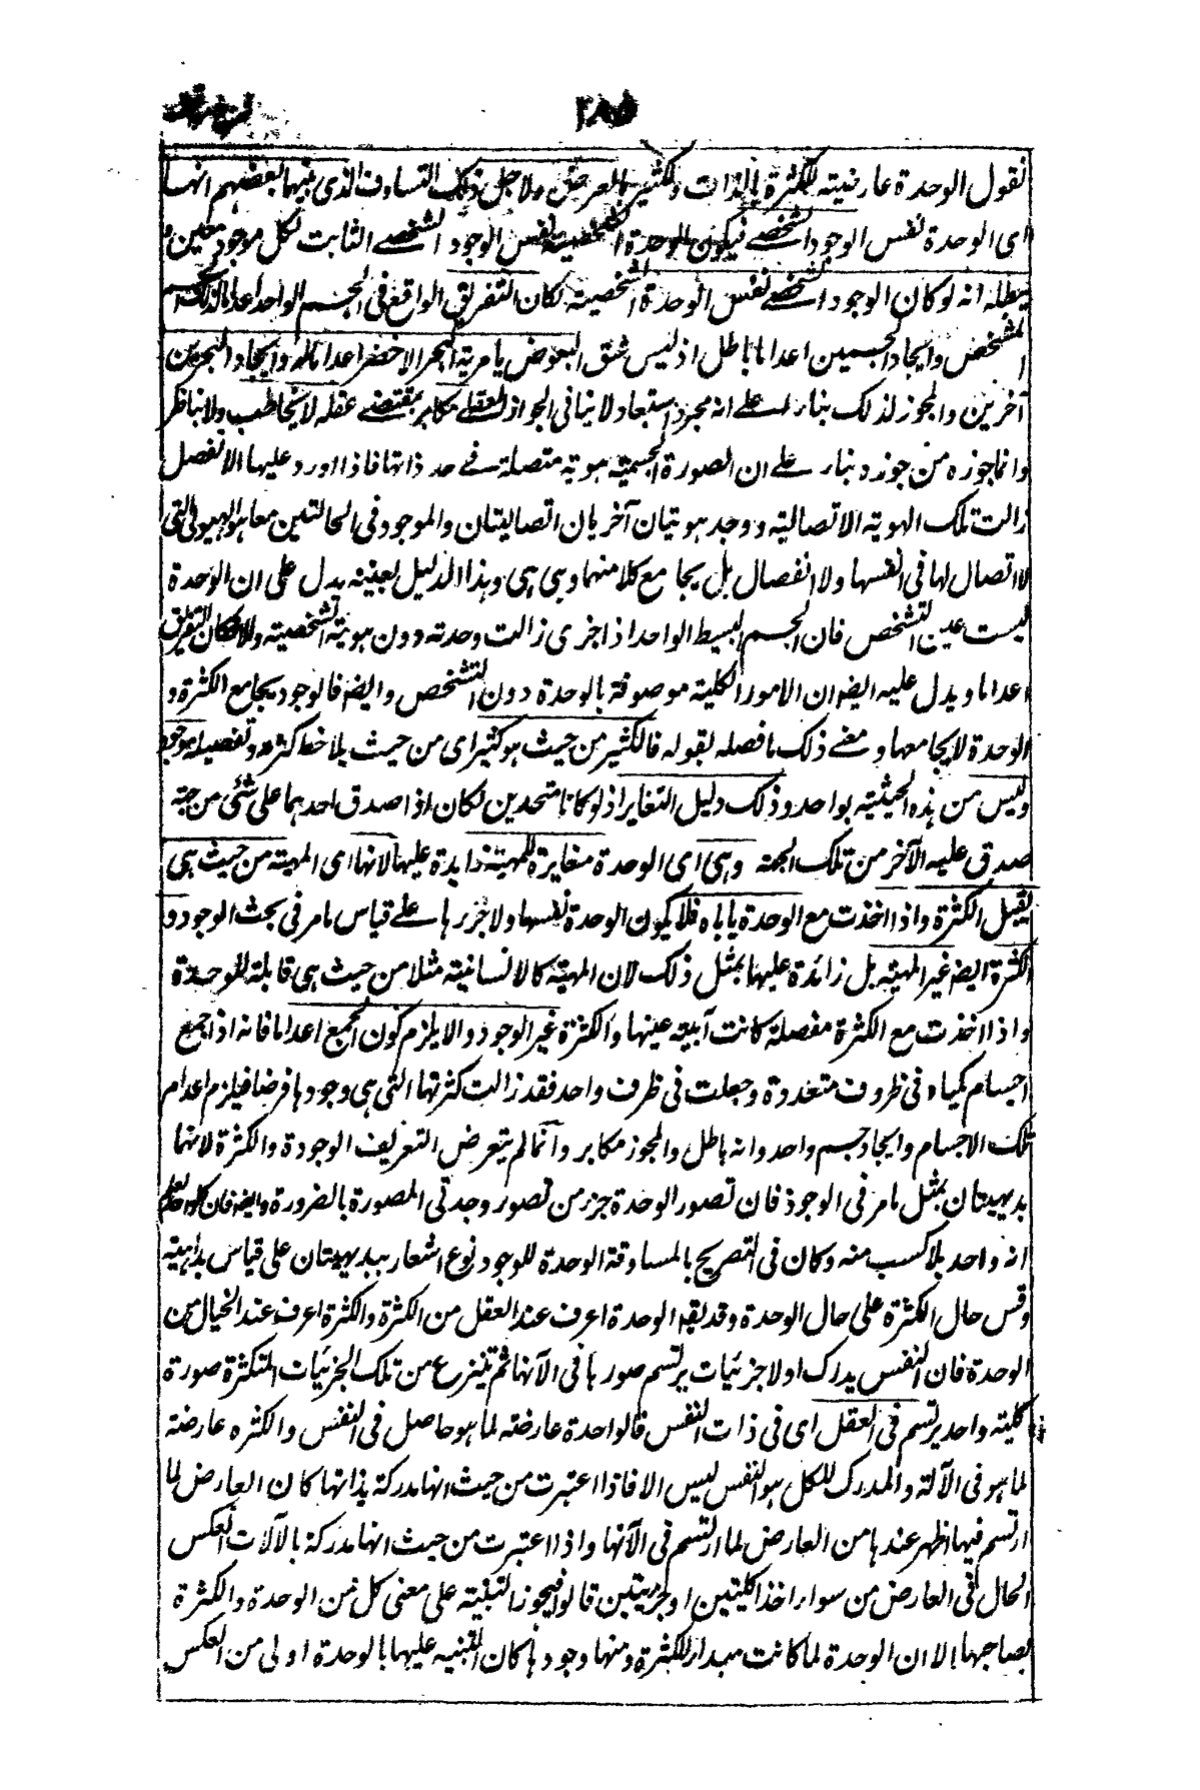 ٢٨٥
نقول الوحدة عارضية للكثرة بالذات وللكثير بالعرض ولاجل ذلك التساوق الذى بينهما بعضهم انها
اى الوحدة نفس الوجود الشخصے فيكون الوحدة الشخصية نفس الوجود الشخصے الثابت لكل موجود معين و
يبطله انه لو كان الوجود الشخصے نفس الوحدة الشخصية لكان التفريق الواقع فى الجسم الواحد اعداما لذلك الجسم
المشخص وايجادا لجسمين اعداما باطل اذ ليس شق البعوض بابرته البحر الاخضر اعداما له وايجاد البحرين
آخرين والمجوز لذلك بناء علے انه مجرد استبعاد لا ينافى الجواز العقلے مكابر بمقتضے عقله لا يخاطب ولا يناظر
وانما جوزه من جوزه بناء علے ان الصورة الجسمية هوية متصلة فے حد ذاتها فاذا اورد عليها الانفصال
زالت تلك الهوية الاتصالية ووجد هويتان آخريان اتصاليتان والموجود فى الحالتين معا هو الهيولى التى
لا اتصال لها فى نفسها ولا انفصال بل يجامع كلا منهما وهى هى وهذا الدليل بعينه يدل على ان الوحدة
ليست عين التشخص فان الجسم البسيط الواحد اذا جزى زالت وحدته دون هويته الشخصية والا لكان التفريق
اعداما ويدل عليه ايضا ان الامور الكلية موصوفة بالوحدة دون التشخص وايضا فالوجود يجامع الكثرة و
الوحدة لا يجامعها و معنے ذلك ما فصله بقوله فالكثير من حيث هو كثير اى من حيث يلاحظ كثرته وتفصيله موجود
وليس من هذه الحيثية بواحد وذلك دليل التغاير اذ لو كانا متحدين لكان اذا صدق احدهما على شئ من جهة
صدق عليه الآخر من تلك الجهة وهى اى الوحدة مغايرة للمهية زايدة عليها لانها اى المهية من حيث هى
يقبل الكثرة واذا اخذت مع الوحدة ياباه فلا يكون الوحدة نفسها ولا جزءها علے قياس ما مر فى بحث الوجود و
الكثرة ايضا غير المهية بل زائدة عليها بمثل ذلك لان المهية كالانسانية مثلا من حيث هى قابلة للوحدة
واذا اخذت مع الكثرة مفصلة كانت آبية عينها والكثرة غير الوجود والا يلزم كون الجمع اعداما فانه اذا جمع
اجسام كمياه فى ظروف متعددة وجعلت فى ظرف واحد فقد زالت كثرتها التى هى وجودها فرضا فيلزم اعدام
تلك الاجسام وايجاد جسم واحد وانه باطل والمجوز مكابر وانما لم يتعرض التعريف الوحدة والكثرة لانهما
بديهيتان بمثل ما مر فى الوجود فان تصور الوحدة جزء من تصور وحدتى المتصورة بالضرورة وايضا فان كل احد يعلم
انه واحد بلا كسب منه وكان فى التصريح بالمساوقة الوحدة للوجود نوع اشعار ببديهيتان على قياس بداهته
وقس حال الكثرة على حال الوحدة وقد يقال الوحدة اعرف عند العقل من الكثرة والكثرة اعرف عند الخيال من
الوحدة فان النفس يدرك اولا جزئيات يرتسم صورها فى آلاتها ثم تنزع من تلك الجزئيات المتكثرة صورة
كلية واحد يرتسم فى العقل اى فى ذات النفس فالواحدة عارضته لما هو حاصل فى النفس والكثره عارضته
لما هو فى الآلة والمدرك للكل هو النفس ليس الا فاذا اعتبرت من حيث انها مدركة بذاتها كان العارض لما
ارتسم فيها اظهر عندها من العارض لما ارتسم فى آلاتها واذا اعتبرت من حيث انها مدركة بالآلات انعكس
الحال فى العارض من سواء اخذا كليتين او جزئيتين قالوا فيجوز التنبيه على معنى كل من الوحدة والكثرة
بصاحبها الا ان الوحدة لما كانت مبدأ للكثرة ومنها وجودها كان التنبيه عليها بالوحدة اولى من العكس